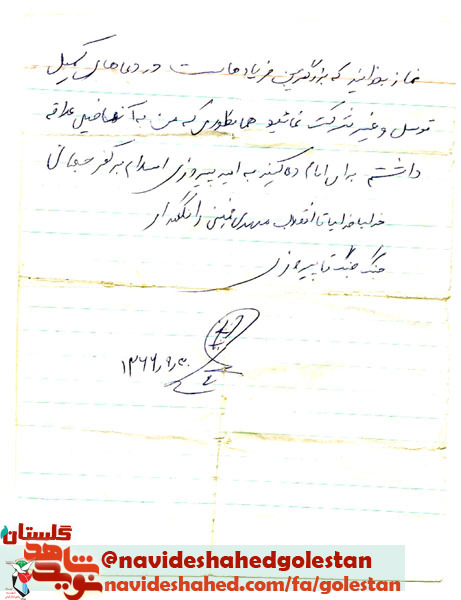 نماز بخوانید که بزرگترین فریادهاست و در دعاهای کمیل
توسل و غیره شرکت نمائید همانطوری که من به آنها خیلی علاقه
داشتم برای امام دعا کنید به امید پیروزی اسلام بر کفر جهانی
خدایا خدایا تا انقلاب مهدی خمینی را نگهدار
جنگ جنگ تا پیروزی
۱۳۶۶,۹,۳۰
گلستان
نوید شاهد
@navideshahedgolestan
navideshahed.com/fa/golestan